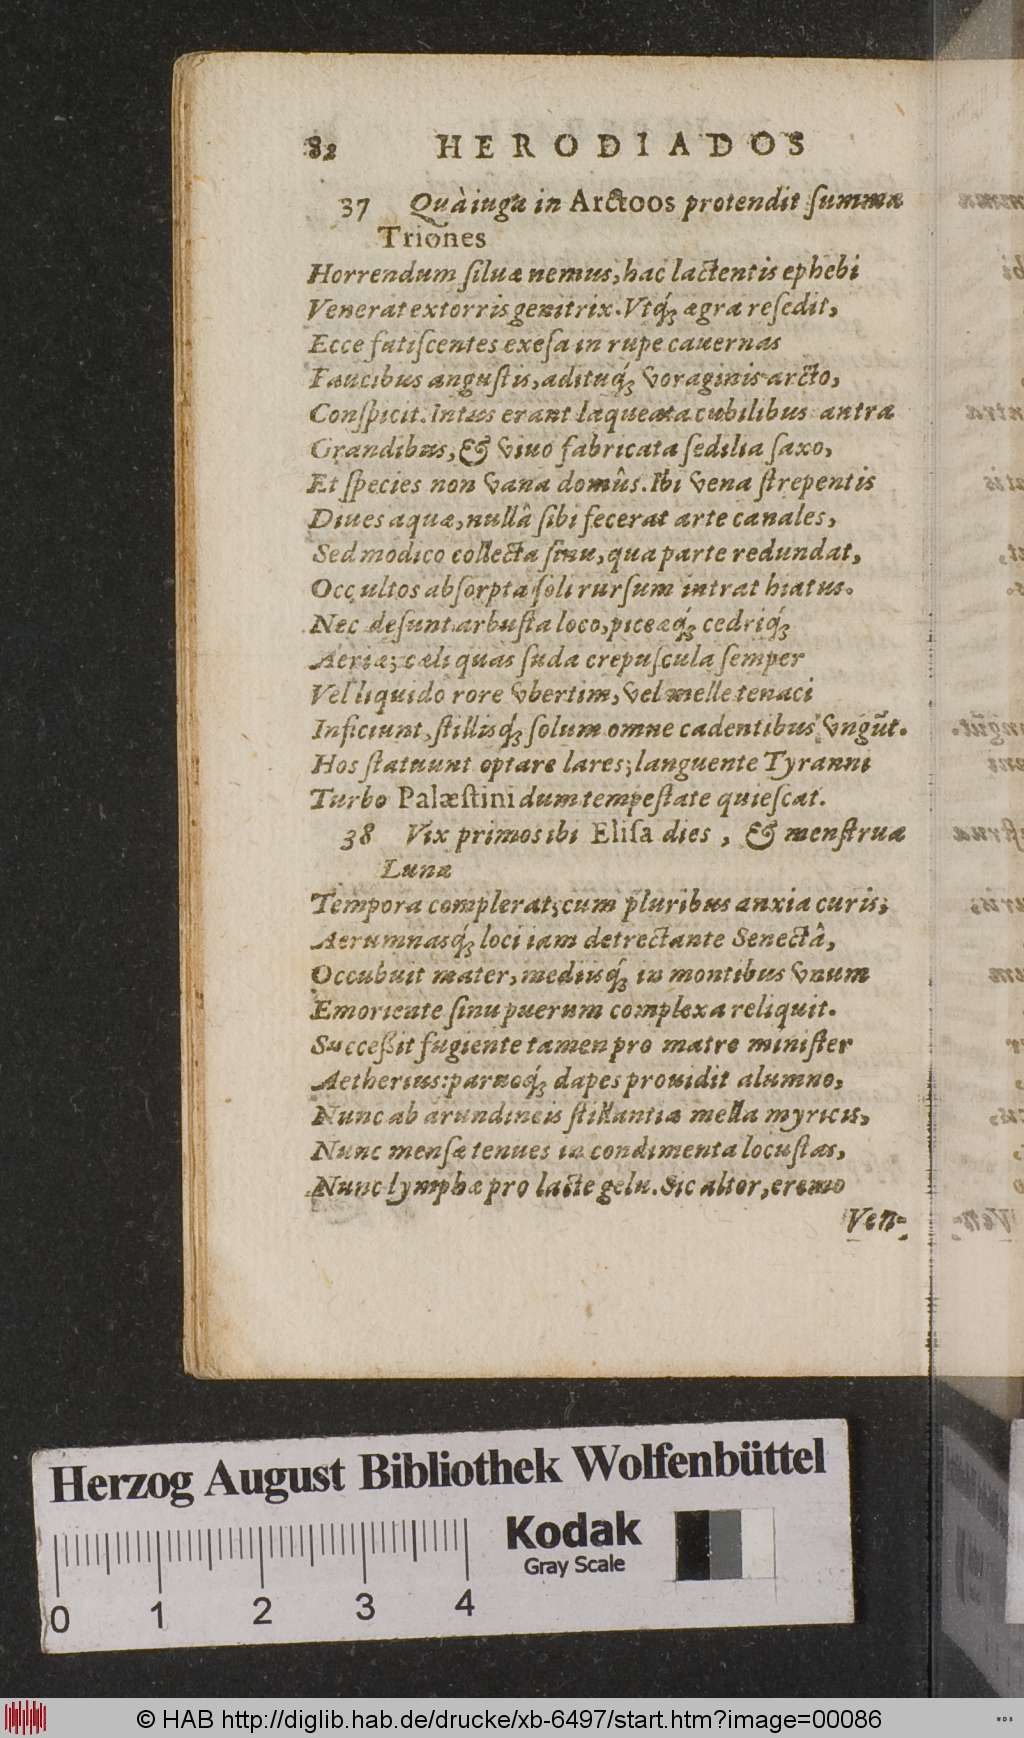 82 HERODIADOS
37 Quà iuga in Arctoos protendit ſumma
Triones
Horrendum ſiluæ nemus, hac lactentis ephebi
Venerat extorris genitrix. Vtq́; ægra reſedit,
Ecce fatiſcentes exeſa in rupe cauernas
Faucibus anguſtis, adituq́; voraginis arcto,
Conſpicit. Intus erant laqueata cubilibus antra
Grandibus, & viuo fabricata ſedilia ſaxo,
Et ſpecies non vana domûs. Ibi vena ſtrepentis
Diues aquæ, nullâ ſibi fecerat arte canales,
Sed modico collecta ſinu, qua parte redundat,
Occultos abſorpta ſoli rurſum intrat hiatus.
Nec deſunt arbuſta loco, piceæq́; cedriq́;
Aeriæ; cæli quas ſuda crepuſcula ſemper
Vel liquido rore vbertim, vel melle tenaci
Inficiunt, ſtillisq́; ſolum omne cadentibus vngūt.
Hos ſtatuunt optare lares; languente Tyranni
Turbo Palæſtini dum tempeſtate quieſcat.
38 Vix primos ibi Eliſa dies, & menſtrua
Lunæ
Tempora complerat; cum pluribus anxia curis;
Aerumnasq́; loci iam detrectante Senectâ,
Occubuit mater, mediisq́; in montibus vnum
Emoriente ſinu puerum complexa reliquit.
Succeßit fugiente tamen pro matre miniſter
Aetherius: paruoq́; dapes prouidit alumno,
Nunc ab arundineis ſtillantia mella myricis,
Nunc menſæ tenues in condimenta locuſtas,
Nunc lymphæ pro lacte gelu. Sic altor, eremo
Ven-
Herzog August Bibliothek Wolfenbüttel
Kodak
Gray Scale
0 1 2 3 4
© HAB http://diglib.hab.de/drucke/xb-6497/start.htm?image=00086